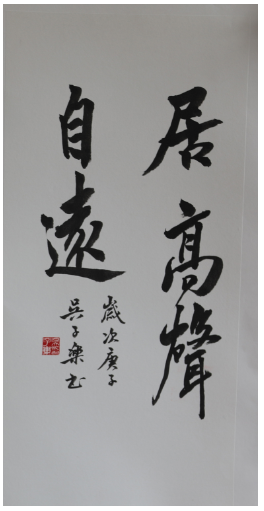 居高聲
自遠
歲次庚子
吳子樂书